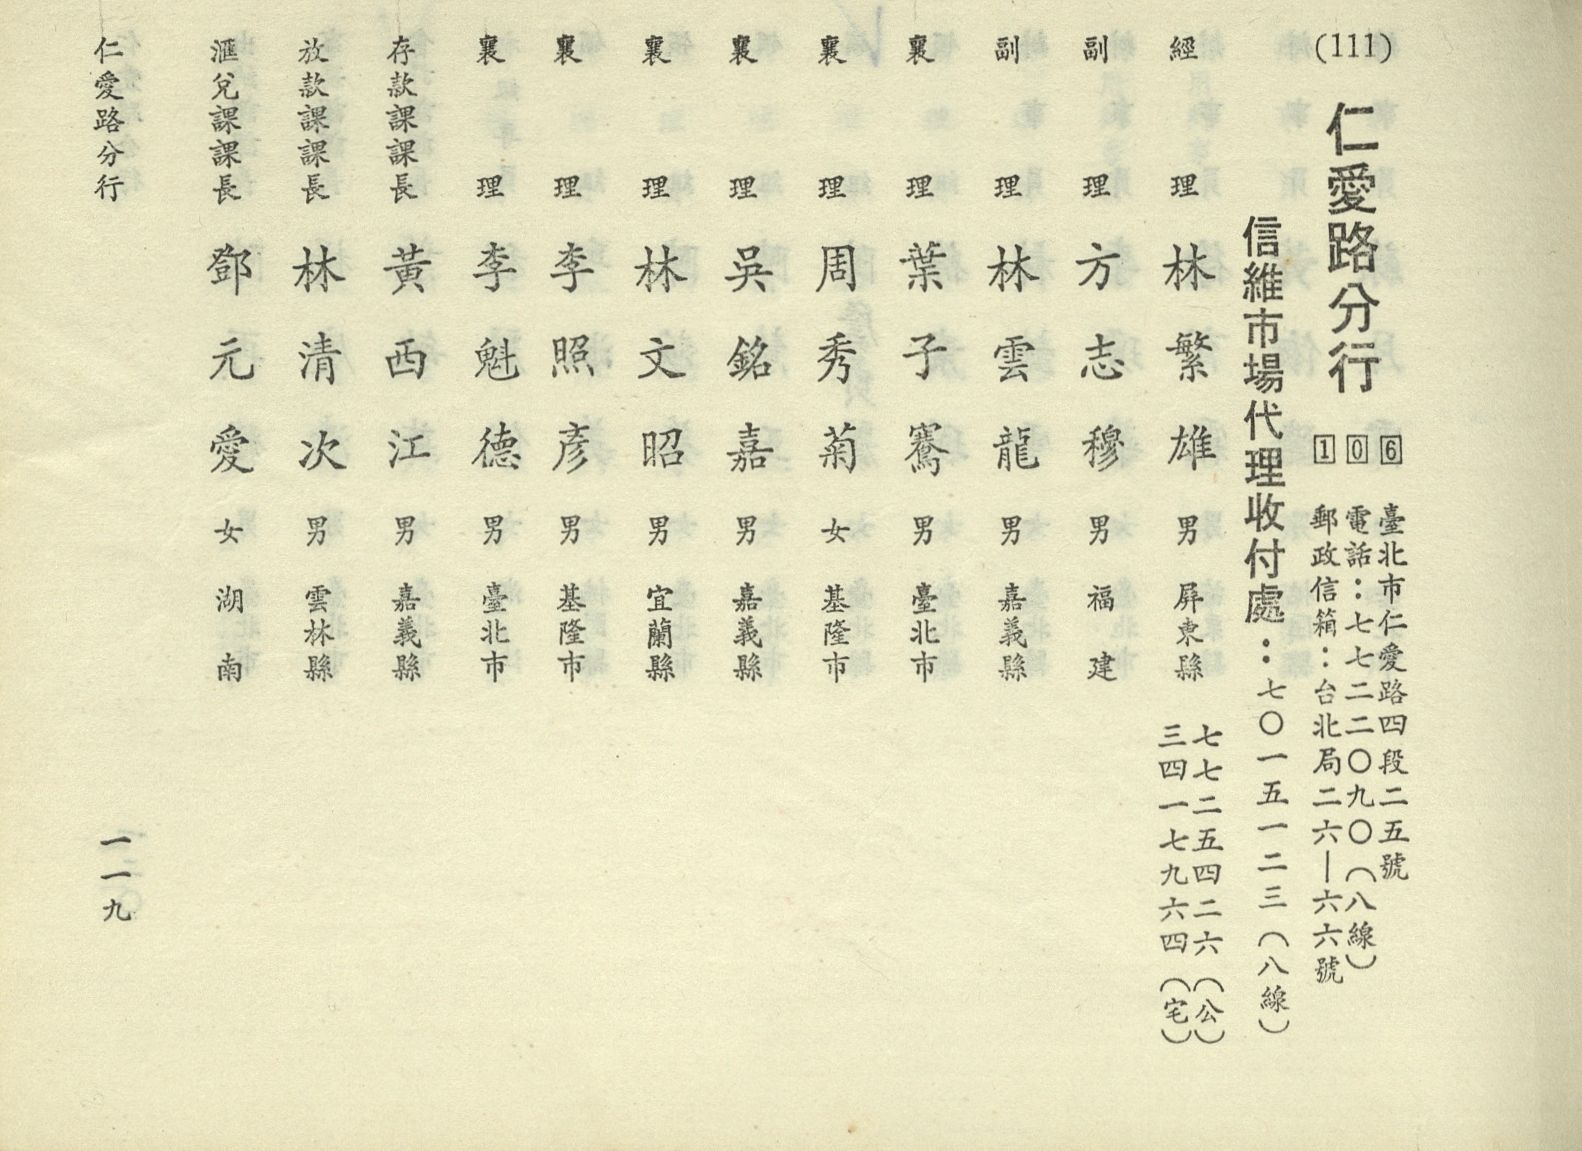 (111)
仁愛路分行
106
臺北市仁愛路四段二五號
電話：七七二二〇九〇（八線）
郵政信箱：台北局二六—六六號
信維市場代理收付處：七〇一五一二三（八線）
經理 林繁雄 男 屏東縣
七七二五四二六（公）
三四一七九六四（宅）
副理 方志穆 男 福建
副理 林雲龍 男 嘉義縣
襄理 葉子騫 男 臺北市
襄理 周秀菊 女 基隆市
襄理 吳銘嘉 男 嘉義縣
襄理 林文昭 男 宜蘭縣
襄理 李照彥 男 基隆市
襄理 李魁德 男 臺北市
存款課課長 黃西江 男 嘉義縣
放款課課長 林清次 男 雲林縣
滙兌課課長 鄧元愛 女 湖南
仁愛路分行
一一九